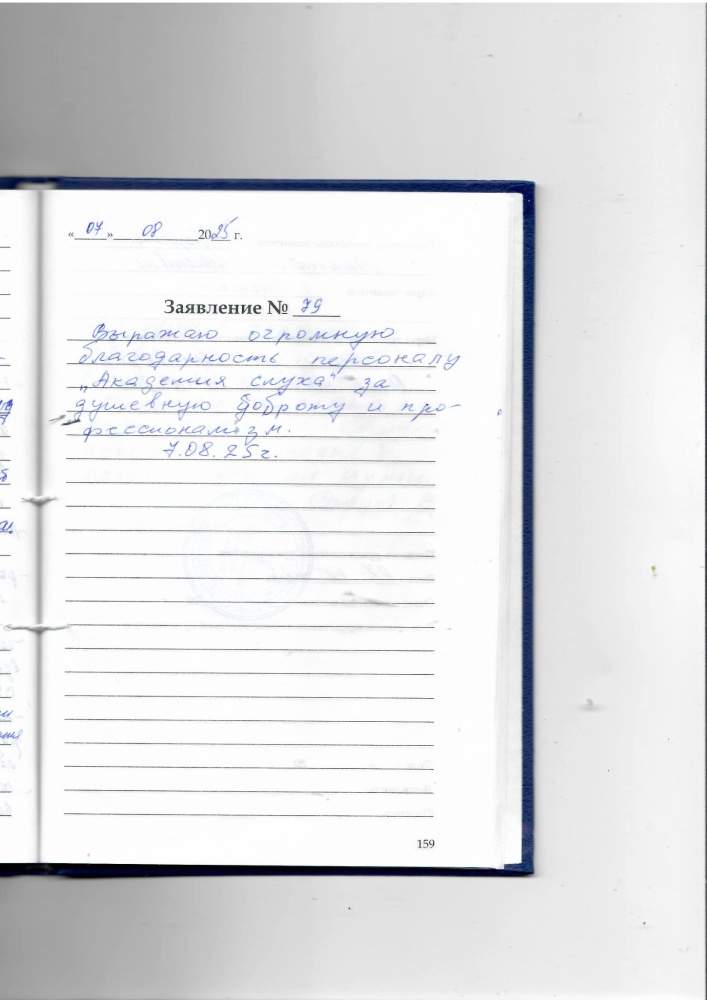 «07» 08 2025 г.
Заявление № 79
Выражаю огромную
благодарность персоналу
„Академия слуха" за
душевную доброту и про-
фессионализм.
7.08.25г.
159